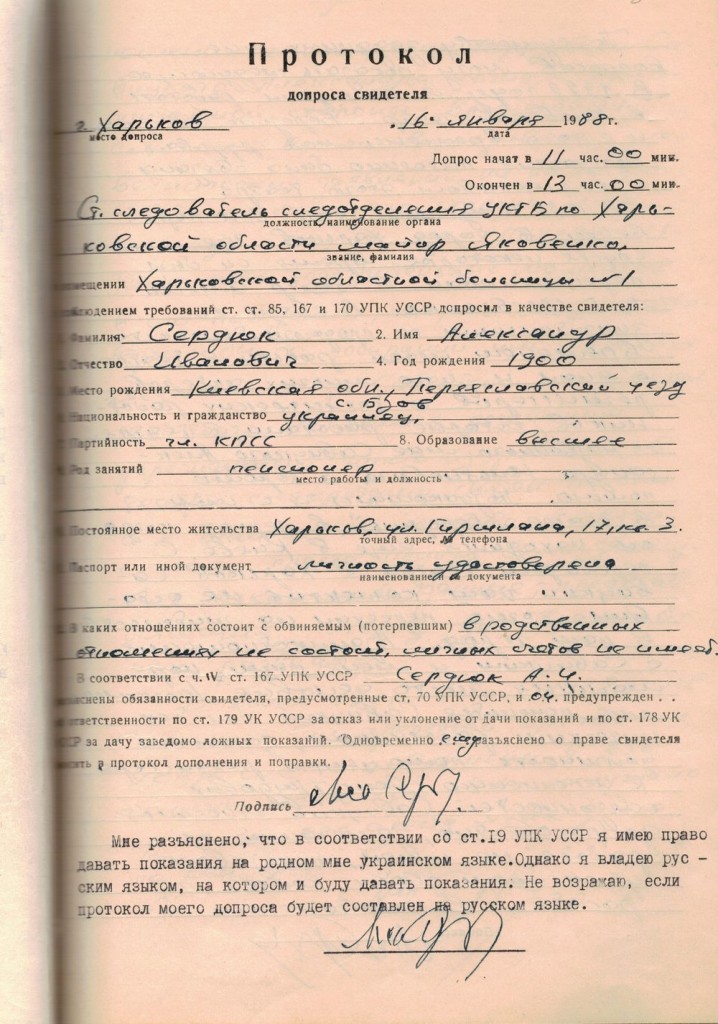 Протокол
допроса свидетеля
г. Харьков „16" января 1988 г.
место допроса дата
Допрос начат в 11 час. 00 мин.
Окончен в 13 час. 00 мин.
Ст. следователь следотделения УКГБ по Харь-
должность, наименование органа
ковской области майор Яковенко,
звание, фамилия
мещении Харьковской областной больницы №1
блюдением требований ст. ст. 85, 167 и 170 УПК УССР допросил в качестве свидетеля:
Фамилия Сердюк 2. Имя Александр
Отчество Иванович 4. Год рождения 1900
Место рождения Киевская обл., Переяславский уезд
с.
Национальность и гражданство украинец,
Партийность чл. КПСС 8. Образование высшее
Род занятий пенсионер
место работы и должность
Постоянное место жительства Харьков, ул. Гиршмана, 17, кв. 3.
точный адрес, № телефона
Паспорт или иной документ личность удостоверена
наименование и № документа
В каких отношениях состоит с обвиняемым (потерпевшим) в родственных
отношениях не состоит, личных счетов не имеет.
В соответствии с ч. IV ст. 167 УПК УССР Сердюк А.И.
яснены обязанности свидетеля, предусмотренные ст. 70 УПК УССР, и он предупрежден . .
ответственности по ст. 179 УК УССР за отказ или уклонение от дачи показаний и по ст. 178 УК
за дачу заведомо ложных показаний. Одновременно ему разъяснено о праве свидетеля
в протокол дополнения и поправки.
Подпись
Мне разъяснено, что в соответствии со ст.19 УПК УССР я имею право
давать показания на родном мне украинском языке.Однако я владею рус -
ским языком, на котором и буду давать показания. Не возражаю, если
протокол моего допроса будет составлен на русском языке.